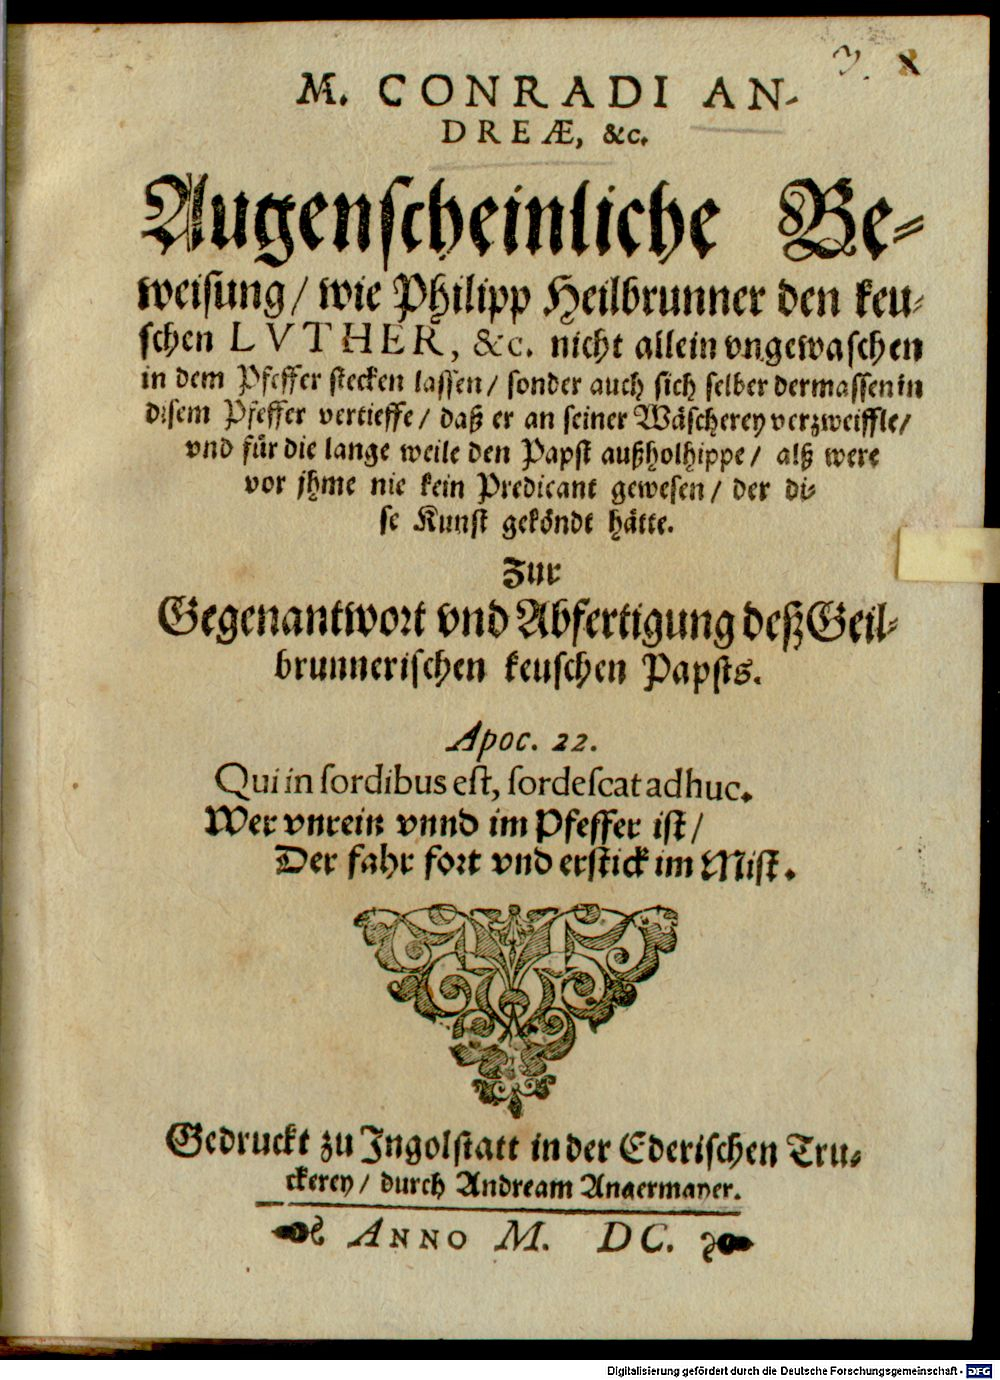 M. CONRADI AN-
DREÆ, &c.
Augenscheinliche Be-
weisung/ wie Philipp Heilbrunner den keu-
schen LVTHER, &c. nicht allein vngewaschen
in dem Pfeffer stecken lassen/ sonder auch sich selber dermassen in
disem Pfeffer vertieffe/ daß er an seiner Wäscherey verzweiffle/
vnd für die lange weile den Papst außholhippe/ alß were
vor jhme nie kein Predicant gewesen/ der di-
se Kunst geköndt hätte.
Zur
Gegenantwort vnd Abfertigung deß Geil-
brunnerischen keuschen Papsts.
Apoc. 22.
Qui in sordibus est, sordescat adhuc.
Wer vnrein vnnd im Pfeffer ist/
Der fahr fort vnd erstick im Mist.
Gedruckt zu Ingolstatt in der Ederischen Tru-
ckerey/ durch Andream Angermayer.
ANNO M. DC.
Digitalisierung gefördert durch die Deutsche Forschungsgemeinschaft - DFG